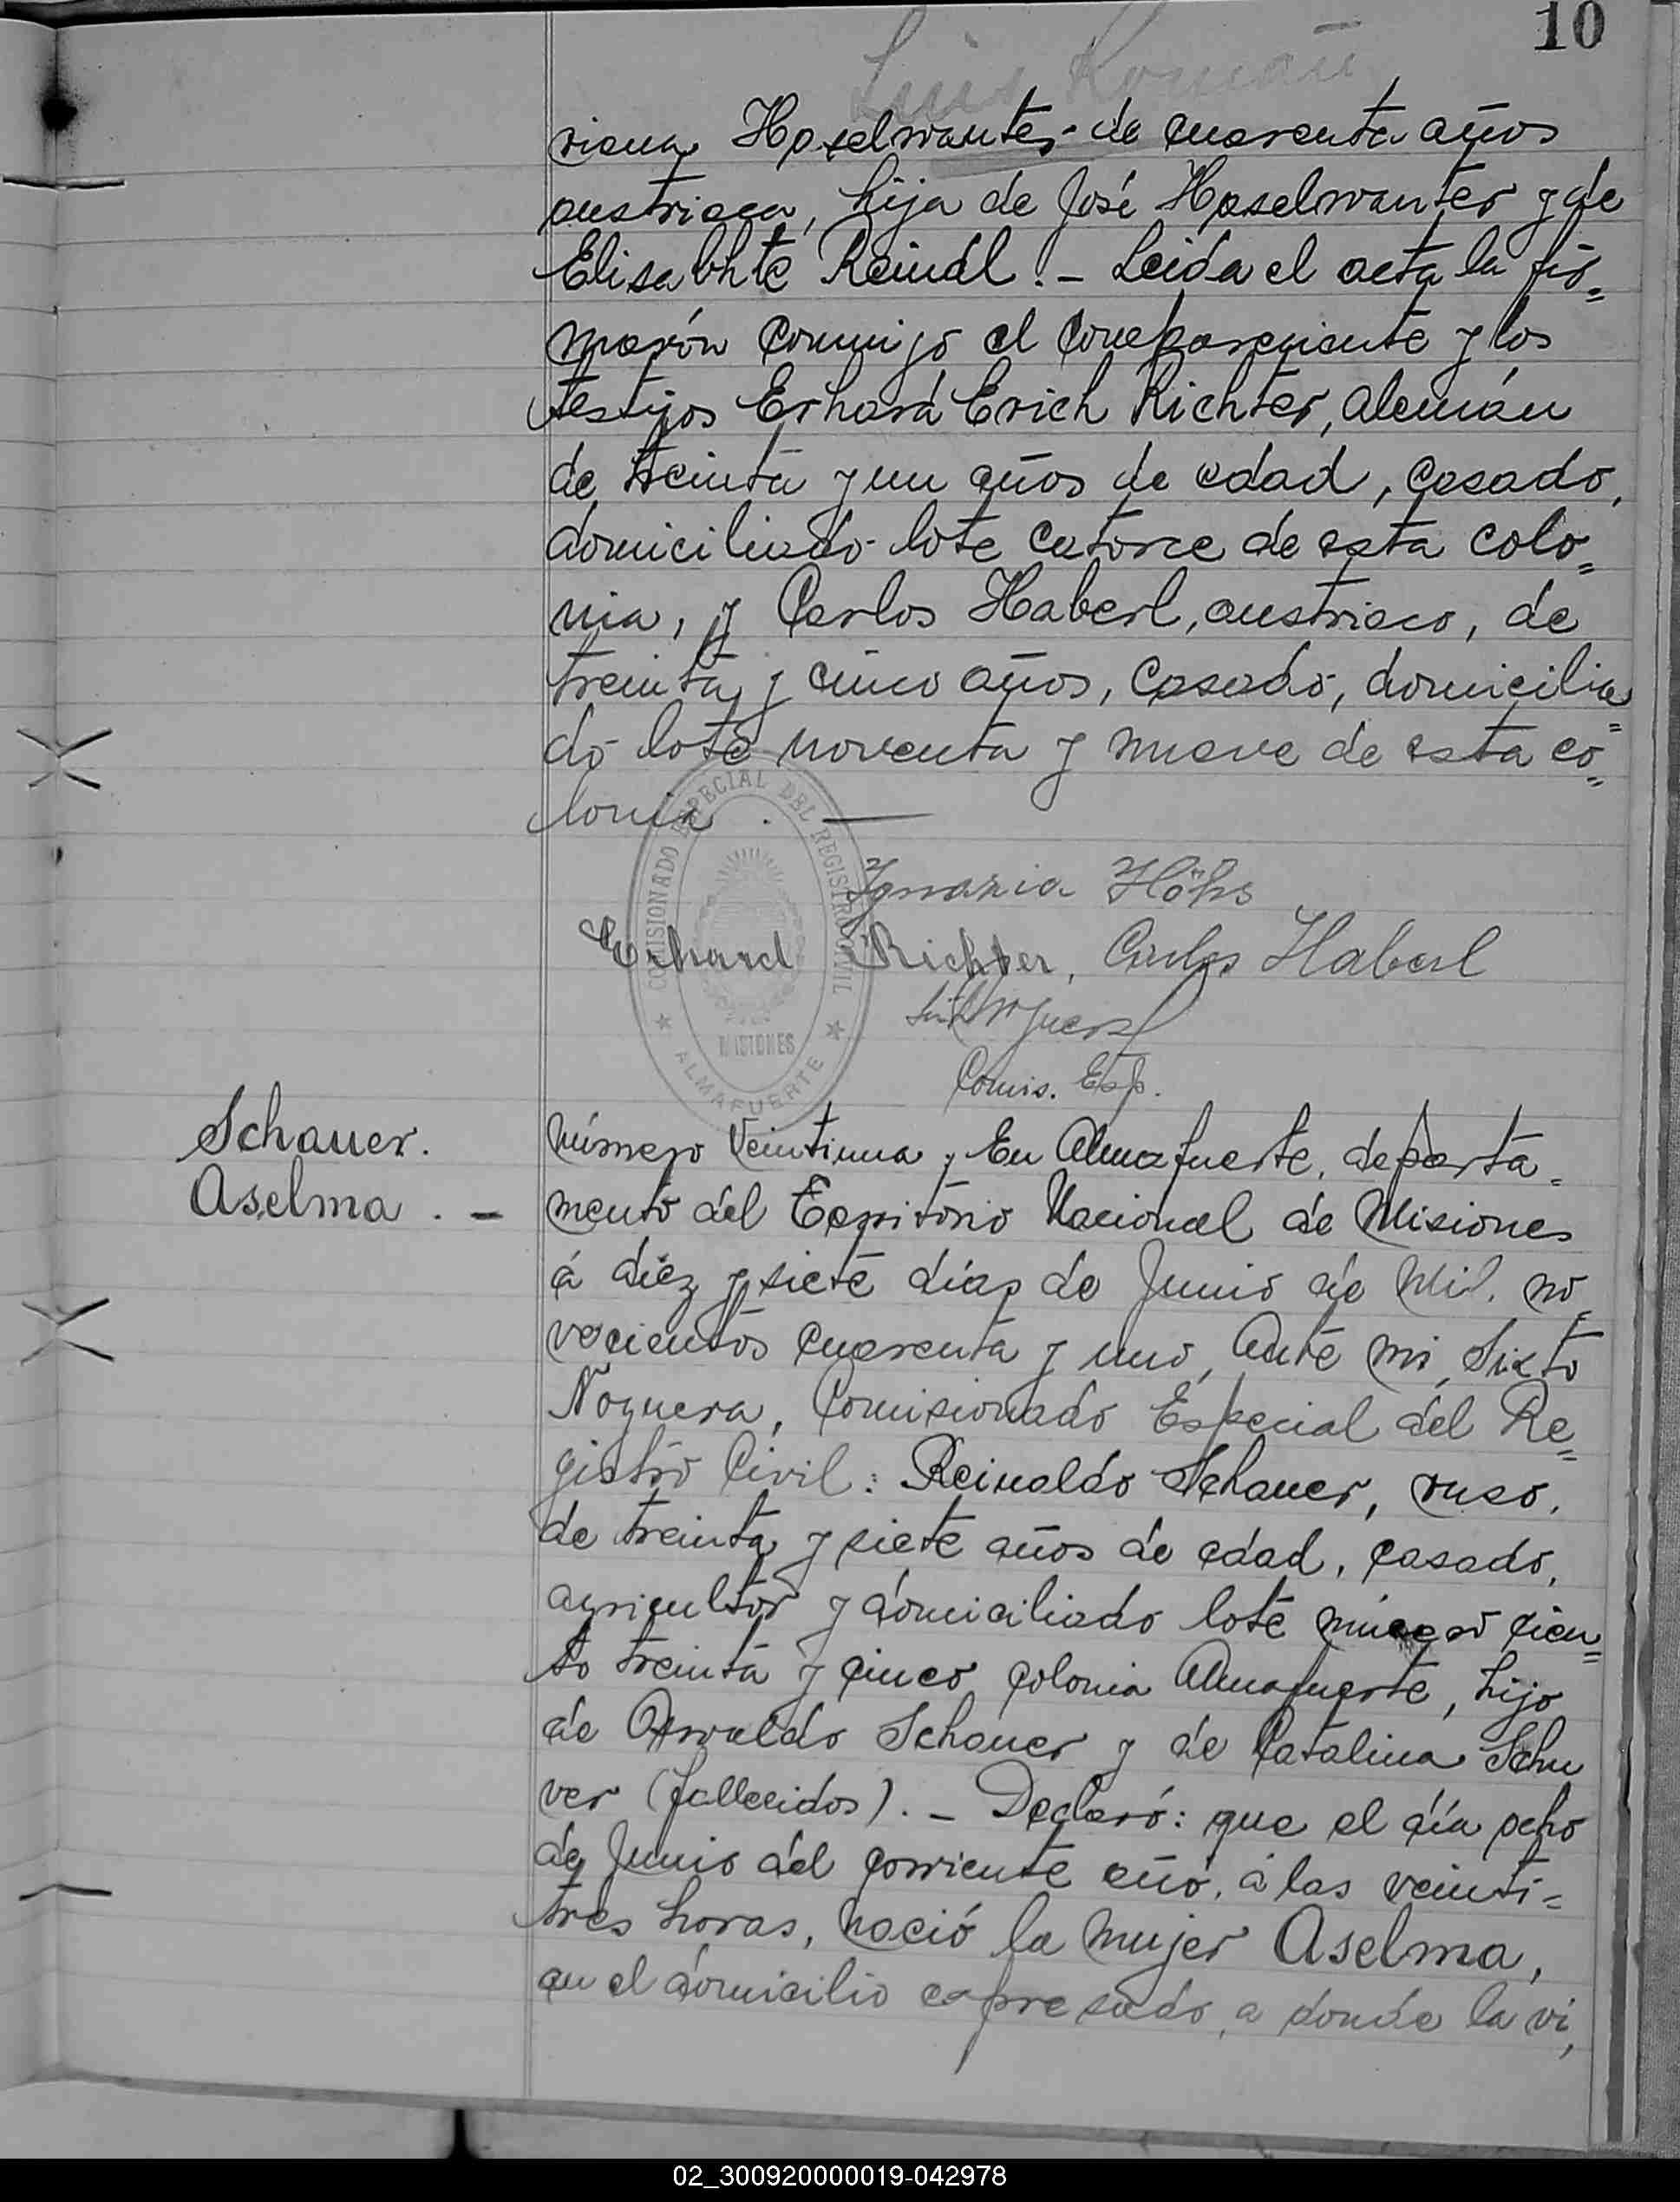 10
Luis Román
riana Haselwanter de cuarenta años
austriaca, hija de José Haselwanter y de
Elisabhte Reindl. - Leida el acta la fir=
marón conmigo el compareciente y los
testigos Erhard Erich Richter, alemán
de treinta y un años de edad, casado,
domiciliado lote catorce de esta colo=
nia, y Carlos Haberl, austriaco, de
treinta y cinco años, casado, domicilia=
do lote noventa y nueve de esta co=
lonia. —
COMISIONADO ESPECIAL DEL REGISTRO CIVIL
MISIONES
★ ALMAFUERTE ★
Ignazia Höhs
Erhard Richter, Carlos Haberl
Comis. Esp.
Schauer.
Aselma. -
Número Veintiuna. En Almafuerte, departa=
mento del Territorio Nacional de Misiones
á diez y siete días de Junio de Mil. no=
vecientos cuarenta y uno, Ante mi, Sixto
Noguera, Comisionado Especial del Re=
gistro Civil: Reinaldo Schauer, ruso,
de treinta y siete años de edad, casado,
agricultor y domiciliado lote número cien=
to treinta y cinco colonia Almafuerte, hijo
de Osvaldo Schauer y de Catalina Schu
ver (fallecidos). - Declaró: que el día ocho
de Junio del corriente año, á las veinti=
tres horas, nació la mujer Aselma,
en el domicilio expresado, a donde la vi,
02_300920000019-042978